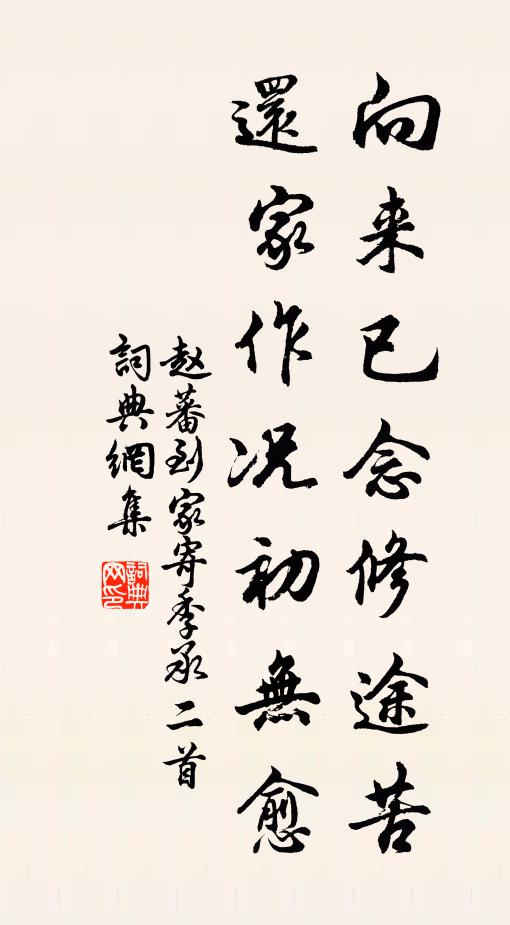 向来已念修途苦
還家作况初無愈
赵蕃到家寄季承二首
詞典網集
詞典网印